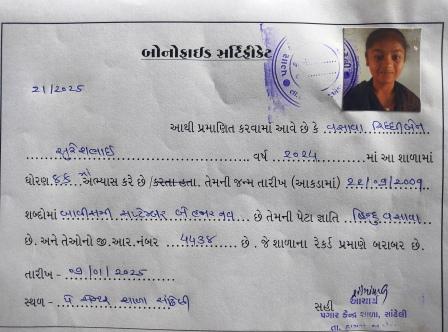 બોનોફાઇડ સર્ટિફીકેટ
21/2025
આથી પ્રમાણિત કરવામાં આવે છે કે વસાવા રિદ્ધીબેન
સુરેશભાઈ વર્ષ 2024 માં આ શાળામાં
ધોરણ માં અભ્યાસ કરે છે /કરતા હતા. તેમની જન્મ તારીખ (આંકડામાં) 22/09/2009
શબ્દોમાં બાવીસમી સપ્ટેમ્બર બે હજાર નવ છે તેમની પેટા જ્ઞાતિ હિન્દુ વસાવા
છે. અને તેઓનો જી.આર.નંબર 4438 છે . જે શાળાના રેકર્ડ પ્રમાણે બરાબર છે.
તારીખ - 09/01/2025
સ્થળ - શાળા
સહી
આચાર્ય
પગાર કેન્દ્ર શાળા,
તા.